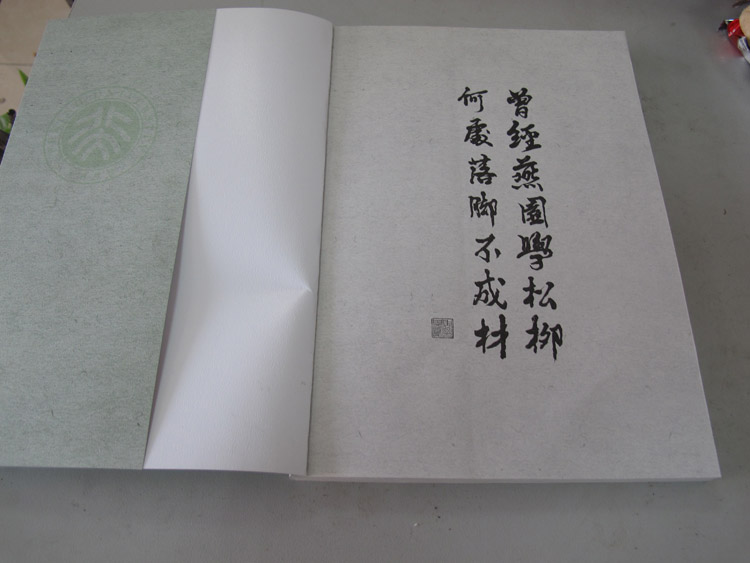 曾經燕園學松柳
何處落脚不成材